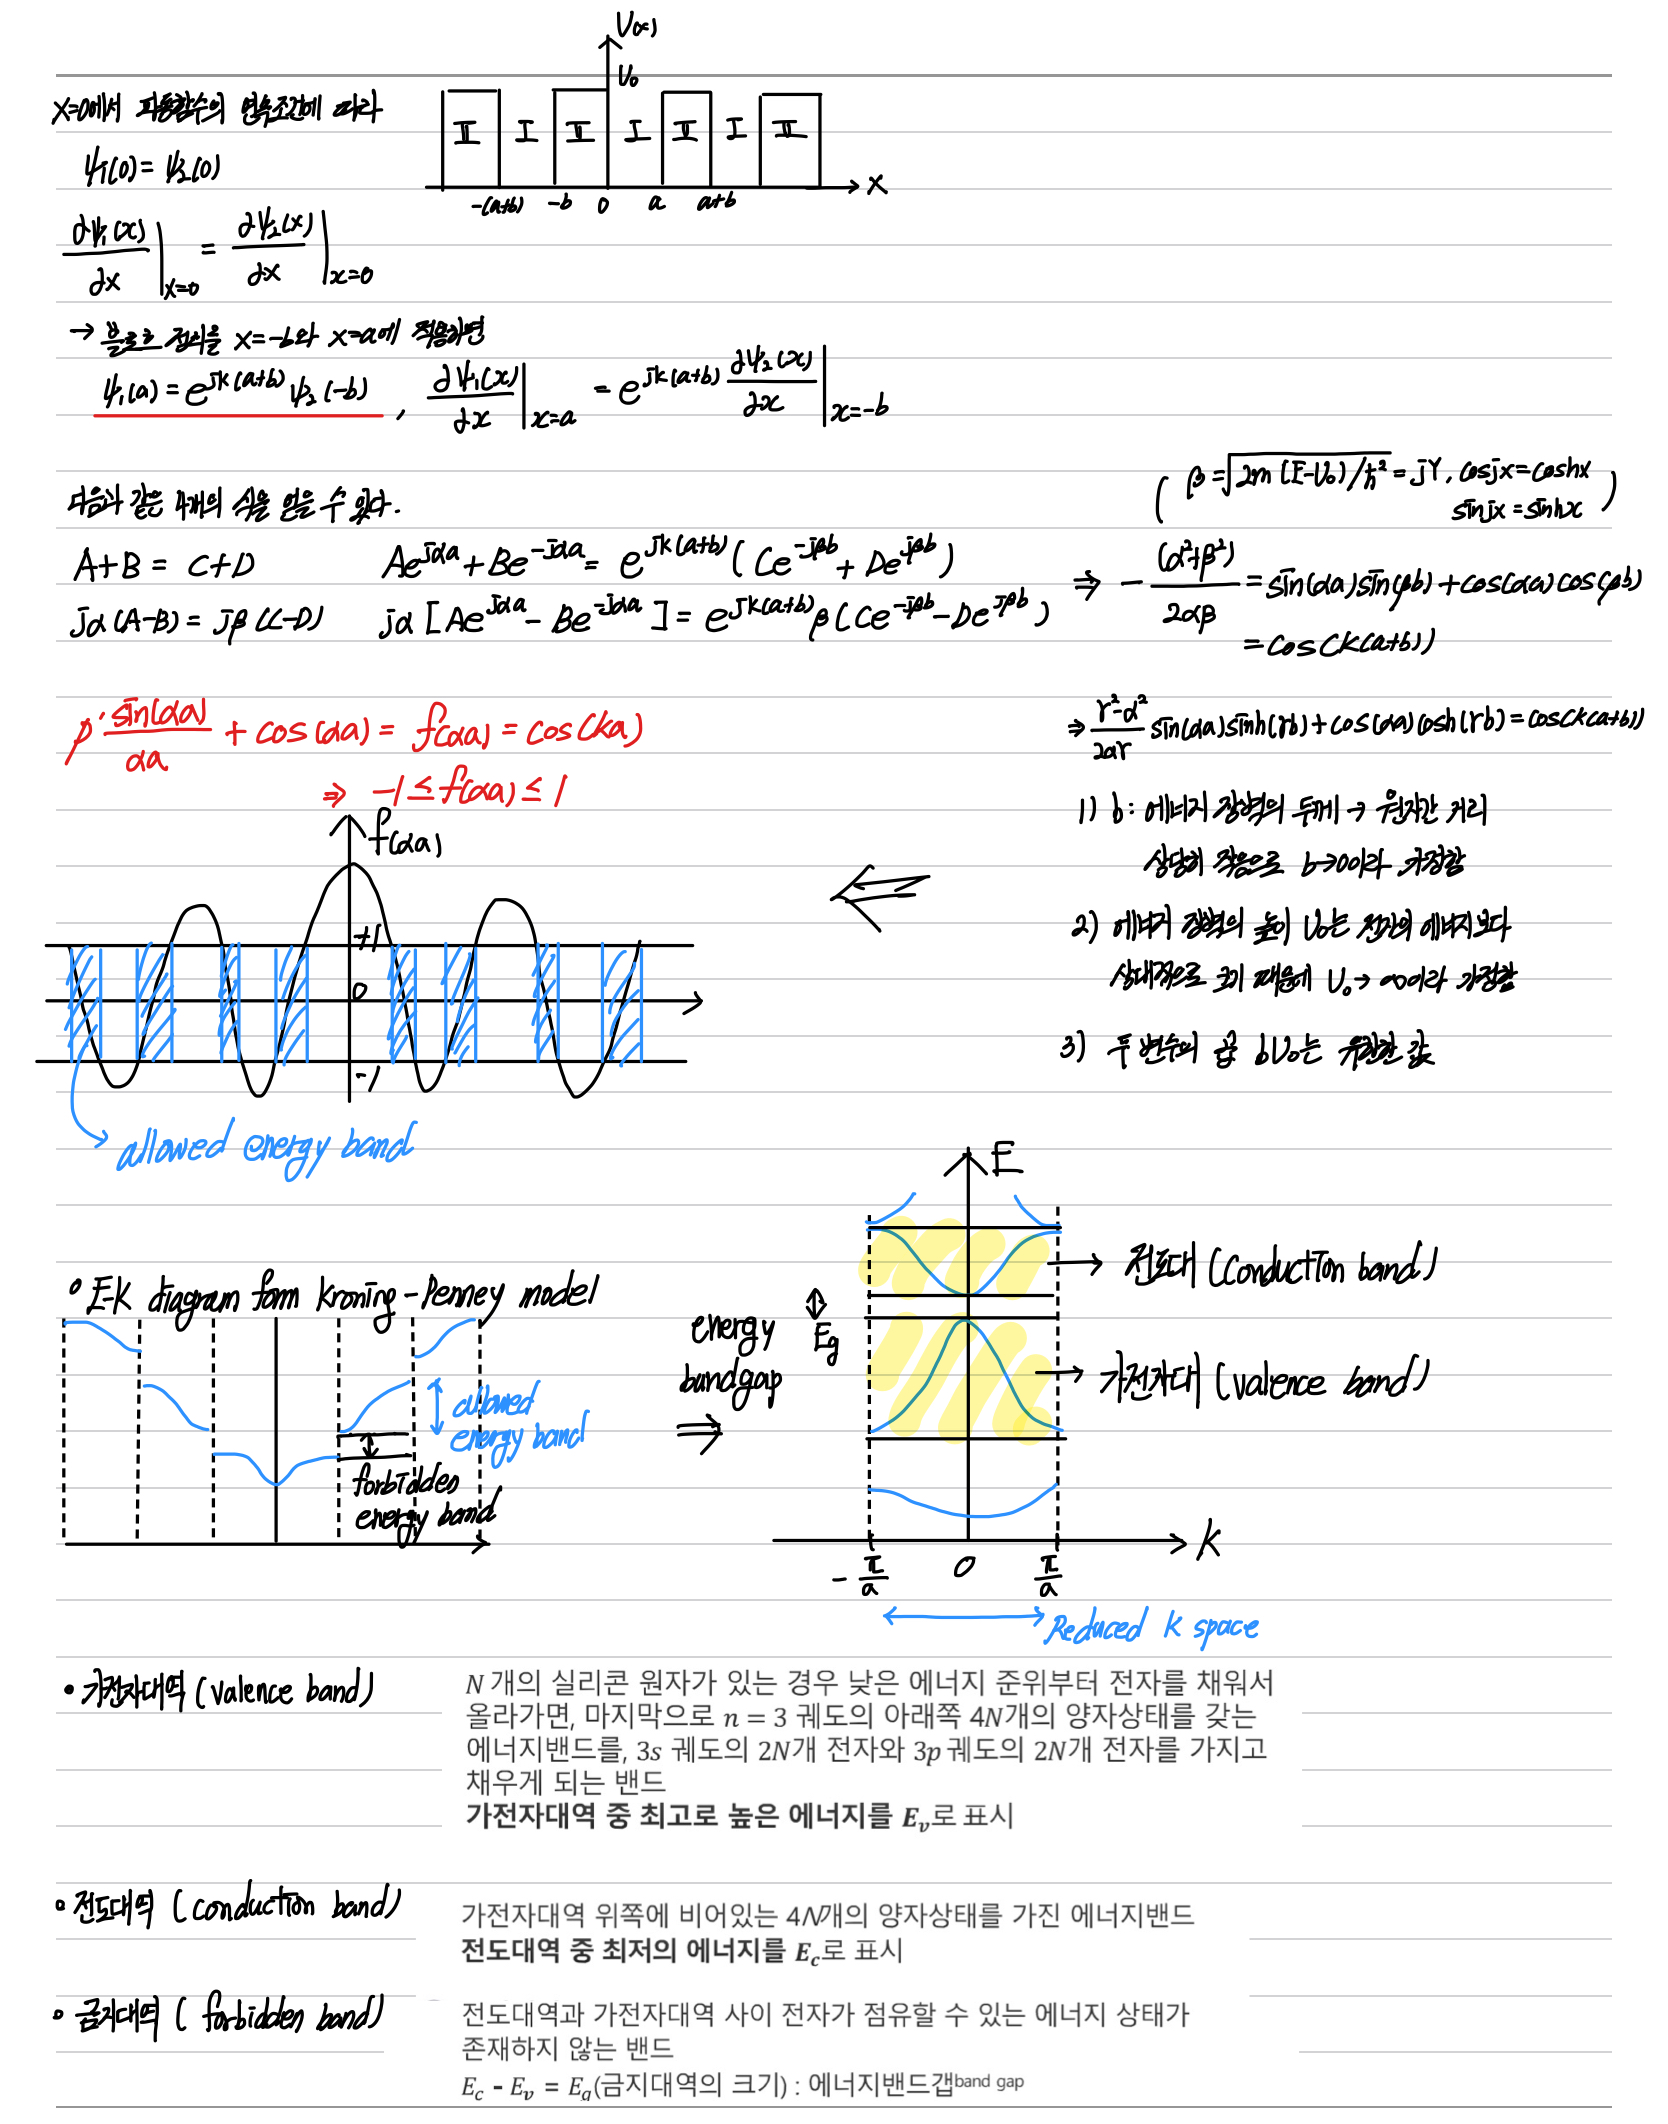 U(x)
U₀
II I II I II I II
-(a+b) -b 0 a a+b x
x=0에서 파동함수의 연속조건에 따라
ψ₁(0) = ψ₂(0)
∂ψ₁(x)/∂x |x=0 = ∂ψ₂(x)/∂x |x=0
→ 블로흐 정리를 x=-b와 x=a에 적용하면
ψ₁(a) = e^{jk(a+b)} ψ₂(-b) , ∂ψ₁(x)/∂x |x=a = e^{jk(a+b)} ∂ψ₂(x)/∂x |x=-b
( β = √(2m(E-U₀)/ħ²) = jγ, cosjx = coshx
sinjx = sinhx )
다음과 같은 4개의 식을 얻을 수 있다.
A+B = C+D Ae^{jαa} + Be^{-jαa} = e^{jk(a+b)} ( Ce^{-jβb} + De^{jβb} )
jα(A-B) = jβ(C-D) jα [Ae^{jαa} - Be^{-jαa}] = e^{jk(a+b)} β(Ce^{-jβb} - De^{jβb})
⇒ - (α²+β²)/2αβ = sin(αa)sin(βb) + cos(αa)cos(βb)
= cos(k(a+b))
⇒ (γ²-α²)/2αγ sin(αa)sinh(γb) + cos(αa)cosh(γb) = cos(k(a+b))
1) b: 에너지 장벽의 두께 → 원자간 거리
상당히 작음으로 b→0이라 가정함
2) 에너지 장벽의 높이 U₀는 전자의 에너지보다
상대적으로 크기 때문에 U₀→∞이라 가정함
3) 두 변수의 곱 bU₀는 유한한 값
p' sin(αa)/αa + cos(αa) = f(αa) = cos(ka)
⇒ -1 ≤ f(αa) ≤ 1
f(αa)
+1
0
-1
allowed energy band
∘ E-K diagram form kroning-Penney model
allowed
energy band
forbidden
energy band
energy
bandgap
⇒
E
Eg
전도대 (conduction band)
가전자대 (valence band)
k
-π/a 0 π/a
Reduced k space
• 가전자대역 (valence band)
N 개의 실리콘 원자가 있는 경우 낮은 에너지 준위부터 전자를 채워서
올라가면, 마지막으로 n = 3 궤도의 아래쪽 4N개의 양자상태를 갖는
에너지밴드를, 3s 궤도의 2N개 전자와 3p 궤도의 2N개 전자를 가지고
채우게 되는 밴드
가전자대역 중 최고로 높은 에너지를 Eᵥ로 표시
∘ 전도대역 (conduction band)
가전자대역 위쪽에 비어있는 4N개의 양자상태를 가진 에너지밴드
전도대역 중 최저의 에너지를 E_c로 표시
∘ 금지대역 ( forbidden band)
전도대역과 가전자대역 사이 전자가 점유할 수 있는 에너지 상태가
존재하지 않는 밴드
E_c - E_v = E_g(금지대역의 크기) : 에너지밴드갭band gap